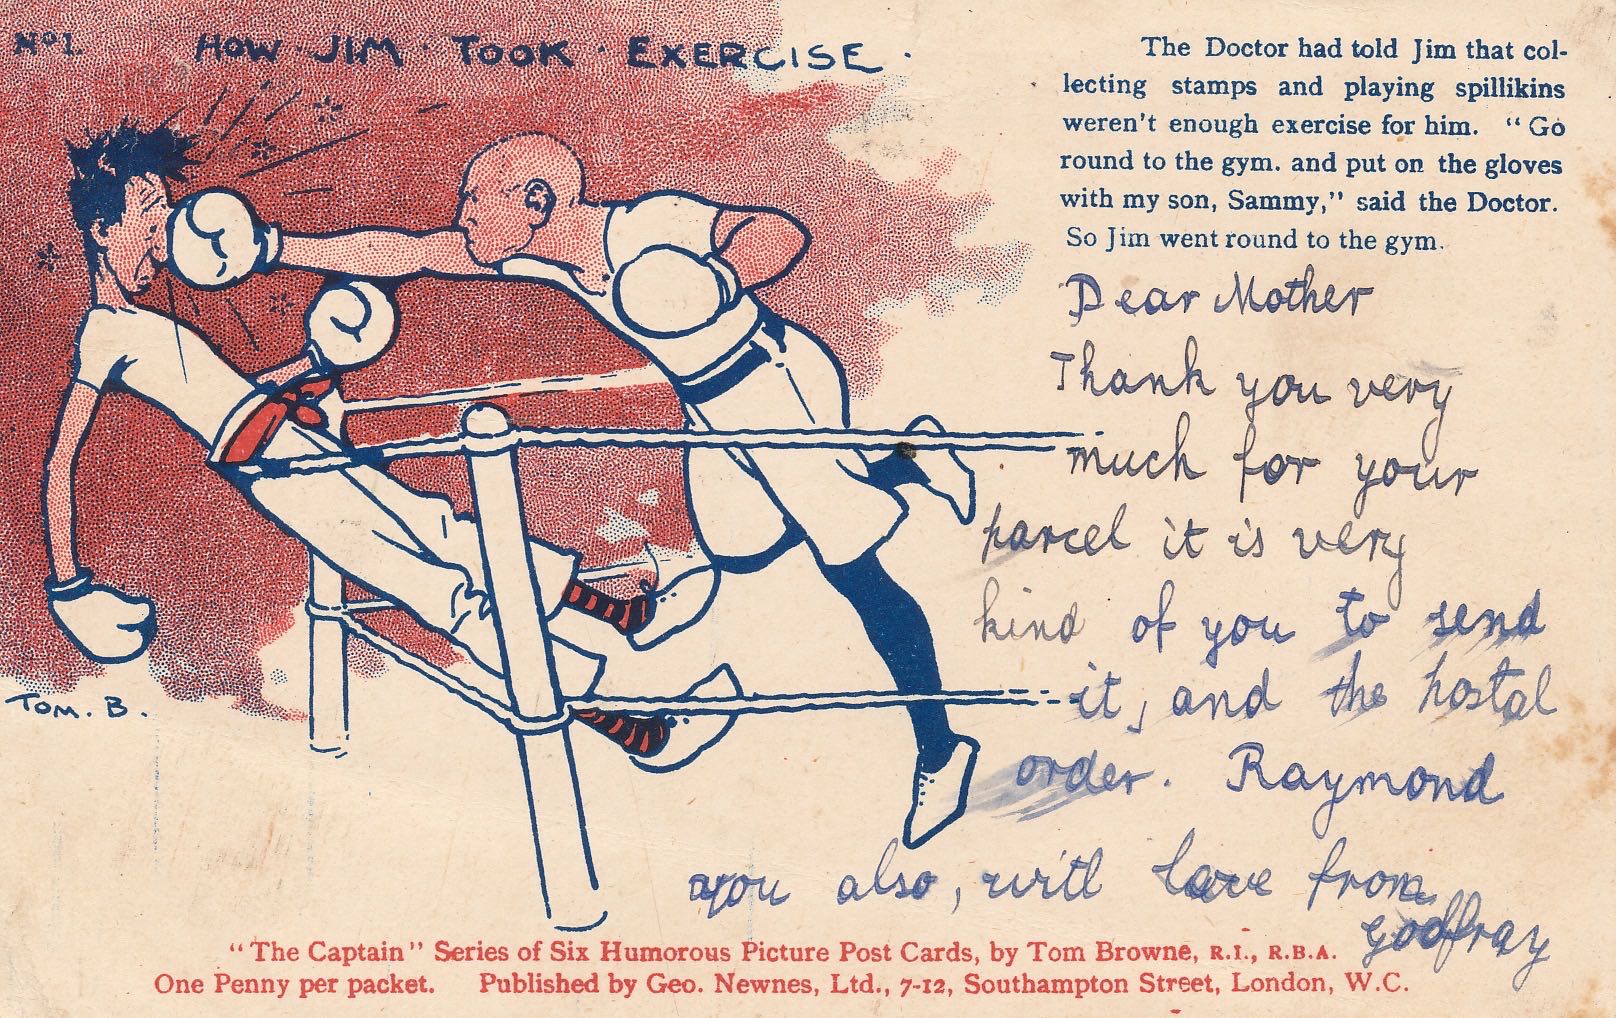 No 1.
HOW · JIM · TOOK · EXERCISE ·
The Doctor had told Jim that col-
lecting stamps and playing spillikins
weren't enough exercise for him. "Go
round to the gym. and put on the gloves
with my son, Sammy," said the Doctor.
So Jim went round to the gym.
Dear Mother
Thank you very
much for your
parcel it is very
kind of you to send
it, and the postal
order. Raymond
you also, with love from
Godffray
TOM. B.
"The Captain" Series of Six Humorous Picture Post Cards, by Tom Browne, R.I., R.B.A.
One Penny per packet. Published by Geo. Newnes, Ltd., 7-12, Southampton Street, London, W.C.